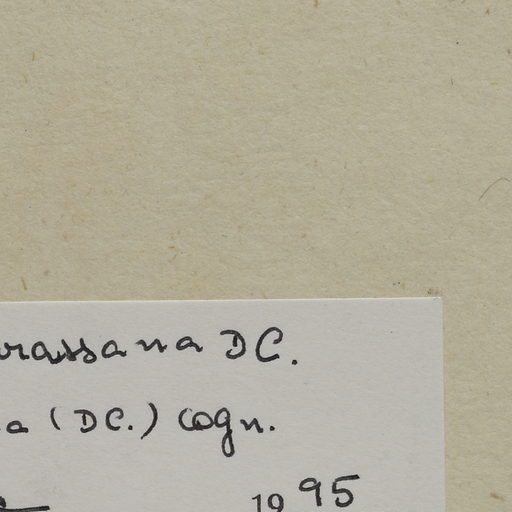 rassana DC.
a (DC.) Cogn.
1995